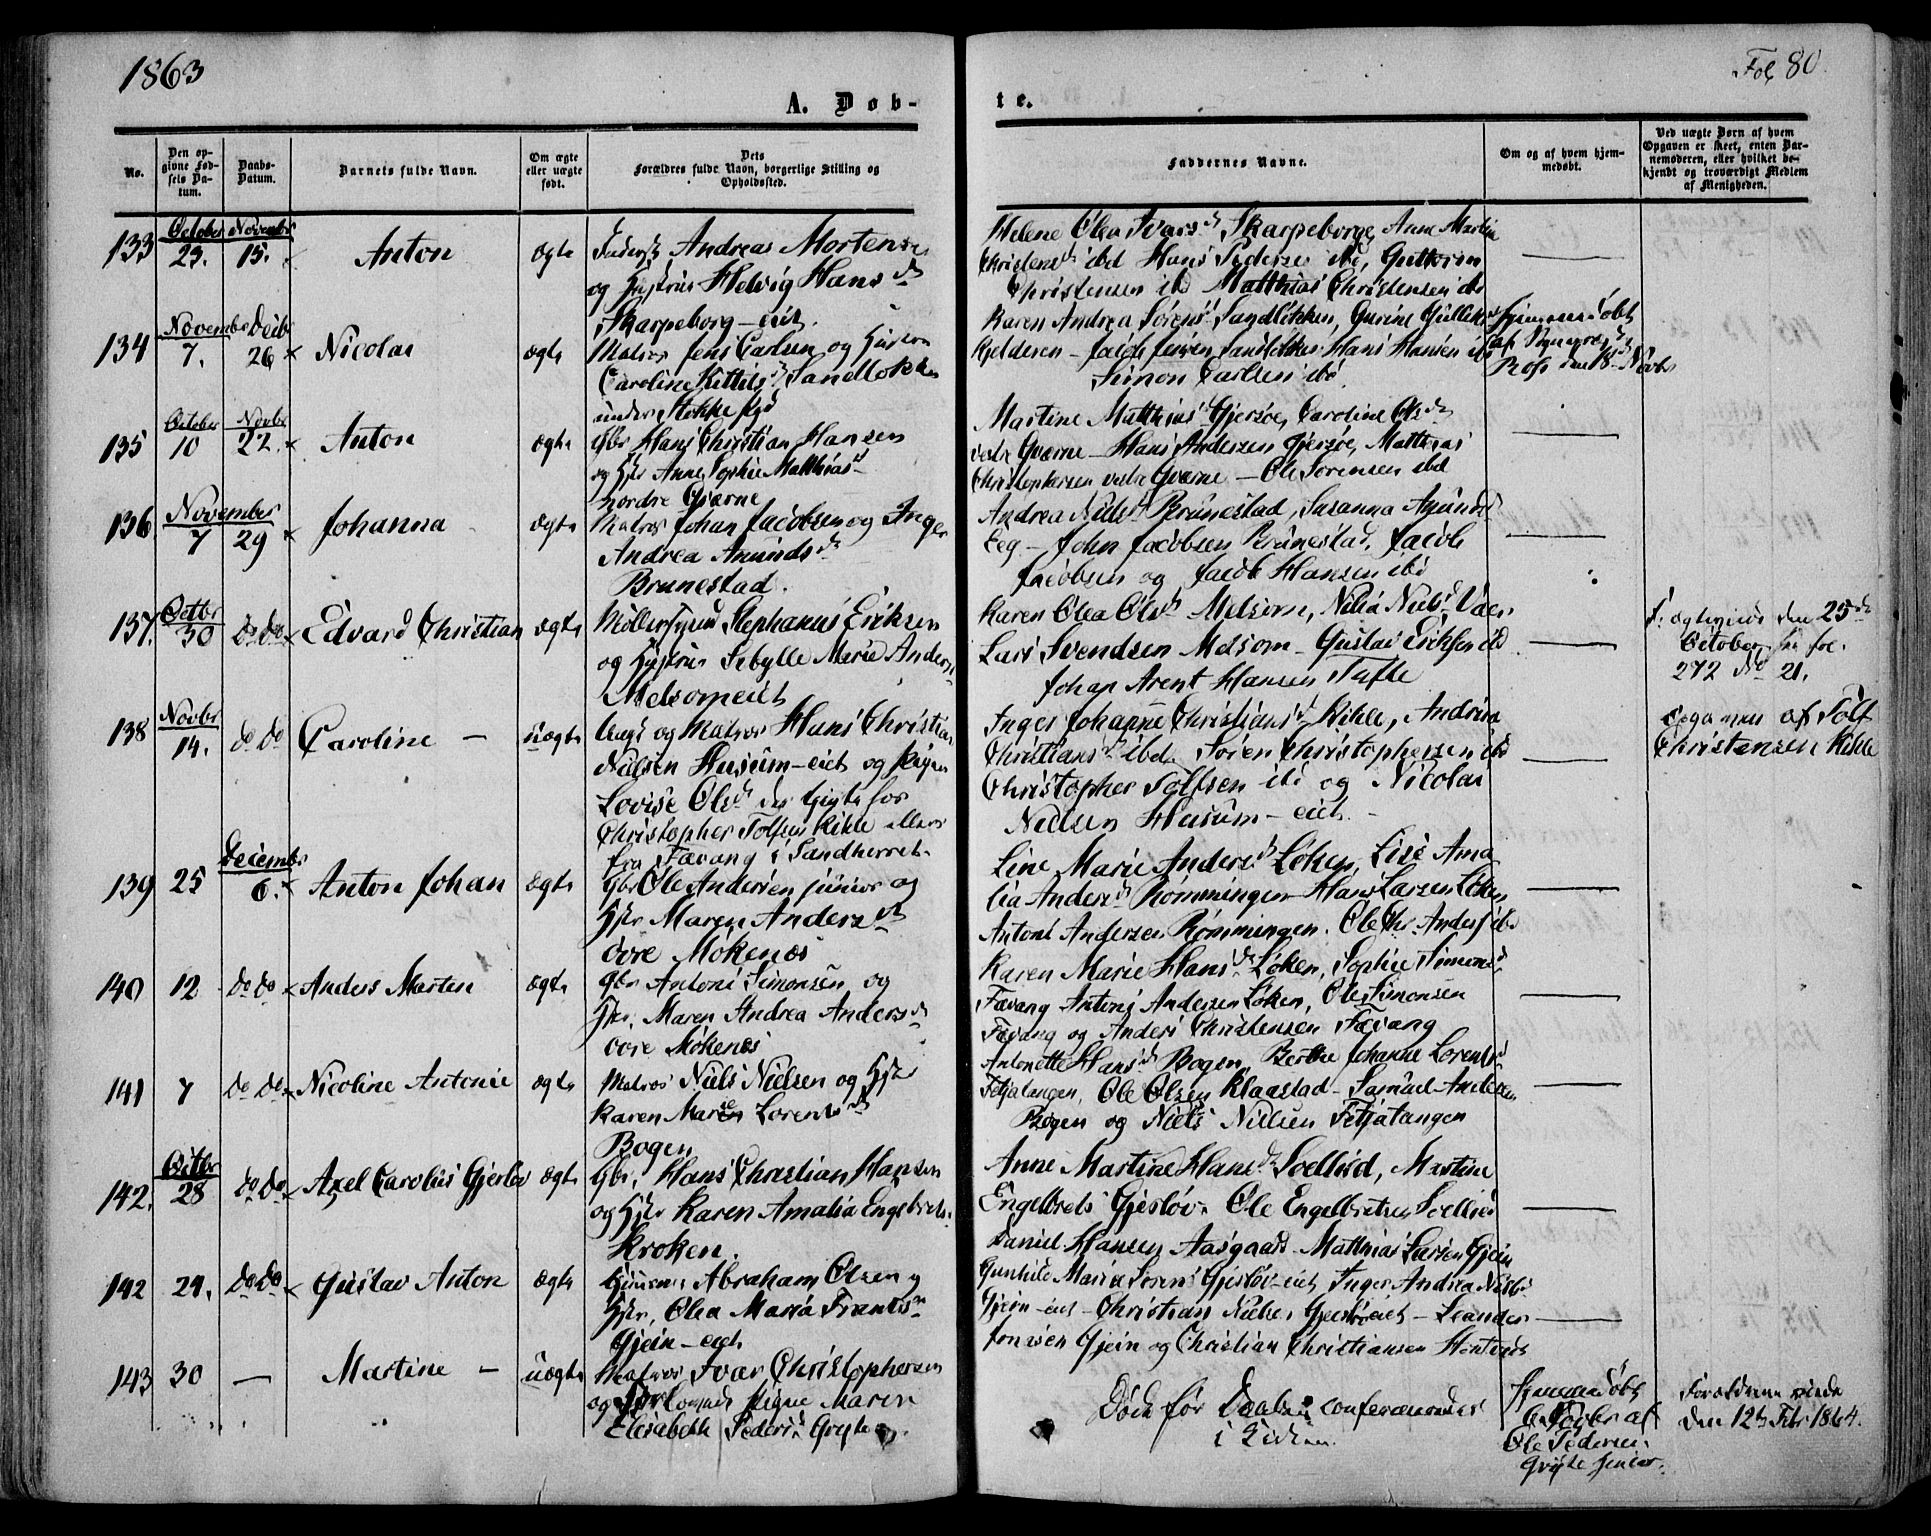 1863
Fol 80.
A. Døb-
te.
No.
Den op-
givne Fød-
sels Da-
tum.
Daabs-
Datum.
Barnets fulde Navn.
Om ægte
eller uægte
født.
Dets
Forældres fulde Navn, borgerlige Stilling og
Opholdssted.
Faddernes Navne.
Om og af hvem hjem-
medøbt.
Ved uægte Børn af hvem
Opgaven er skeet, enten Bar-
nemoderen, eller hvilket be-
kjendt og troværdigt Medlem
af Menigheden.
133
October 23.
Novembr 15.
Anton
ægte
Andreas Mortensen
og Hustru Helvig Hansd
Skarpeborg-eiet.
Helene Olea Ivarsd Skarpeborg, Anne Martin
Christensd ibd Hans Pedersen ibd, Guttorm
Christensen ibd Matthias Christensen ibd
134
November 7.
Decbr 26
Nicolai
ægte
Matros Jens Carlsen og Hustru
Caroline Kittilsd Sandløkken
under Stokke
Karen Andrea Sørens Sandløkken, Gurine Gulliks
Kjelderen - Jacob Jensen Sandløkken Hans Hansen ibd
Simon Carlsen ibd
Hjemmedøbt
af
Ross den 18 Novbr
135
October 10
Novbr 22.
Anton
ægte
Gbr Hans Christian Hansen
og Hstr Anne Sophie Matthias
nordre Gværne
Martine Matthias Gjersøe, Caroline Olsd
vestre Gværne - Hans Andersen Gjersøe, Matthias
Christophersen vestre Gværne - Ole Sørensen ibd
136
November 7
29
Johanna
ægte
Matros Johan Jacobsen og Inger
Andrea Amundsd
Brunestad.
Andrea Nielsd Brunestad, Susanna Amunds
Eeg - John Jacobsen Brunestad, Jacob
Jacobsen og Jacob Hansen ibd
137.
Octbr 30
do do
Edvard Christian
ægte
Møllersvend Stephanus Eriksen
og Hustru Sibylle Marie Anders
Melsomeiet
Karen Olea Olsd Melsom, Nilia Niels Vaer
Lars Svendsen Melsom - Gustav Eriksen ibd
Johan Arent Hansen Tufte
den 25de
October
272 No 21.
138
Novbr 14.
do do
Caroline -
uægte
Ungk og Matros Hans Christian
Nielsen Husum-eiet og Pigen
Lovise Olsd
Christopher Tolfsen Kihle ellers
fra Fævang i Sandherret-
Inger Johanne Christiansd Kihle, Andrine
Christiansd ibd Søren Christophersen ibd
Christopher Tolfsen ibd og Nicolai
Nielsen Husum-eiet.
Opga ves af Tolf
Christensen Kihle
139
25
Decembr 6.
Anton Johan
ægte
Gbr Ole Andersen junior og
Hstr Maren Andersd
øvre Møkenæs
Line Marie Andersd Løken, Lise Ama
lia Andersd Rømmingen Hans Larsen Løken
Antoni Andersen Rømmingen. Ole Chr Anders ibd
140
12
do do
Anders Marten
ægte
Gbr Antoni Simonsen og
Hstr. Maren Andrea Andersd
øvre Møkenæs
Karen Marie Hansd Løken, Sophie Simonsd
Fævang Antoni Andersen Løken, Ole Simonsen
Fævang og Anders Christensen Fævang
141
7
do do
Nicoline Antonie
ægte
Matros Niels Nielsen og Hstr
Karen Maren Lorentsd
Bogen
Antonette Hansd Bogen, Berthe Johanne Lorents
Fetjatangen, Ole Olsen Klaastad - Samuel Andersen
Bogen og Niels Nielsen Fetjatangen
142.
Octbr 28
do do
Axel Carolius Gjersløv
ægte
Gbr. Hans Christian Hansen
og Hstr Karen Amalia Engebrets.
Kroken.
Anne Martine Hansd Soelliød, Martine
Engelbrets Gjersløv. Ole Engelbretsen Soelliød
Daniel Hansen Aasgaard. Matthias Larsen Gjein
142
24.
do do
Gustav Anton
ægte
Abraham Olsen og
Hstr, Olea Maria Frants
Gjein - eiet
Gunhild Maria Sørens Gjersløv-eiet, Inger Andrea Niels
Gjein-eiet - Christian Nielsen Gjersløveiet - Leander
Jonasen Gjein og Christian Christiansen
143
30
Martine -
uægte
Matros Ivar Christophersen
og Pigen Maren
Elisabeth Peders Gryte
Døde før Daaben
i Kirken.
Hjemmedøbt
af
Ole Pedersen
Gryte senior.
Forældrene
den 12te Febr 1864.